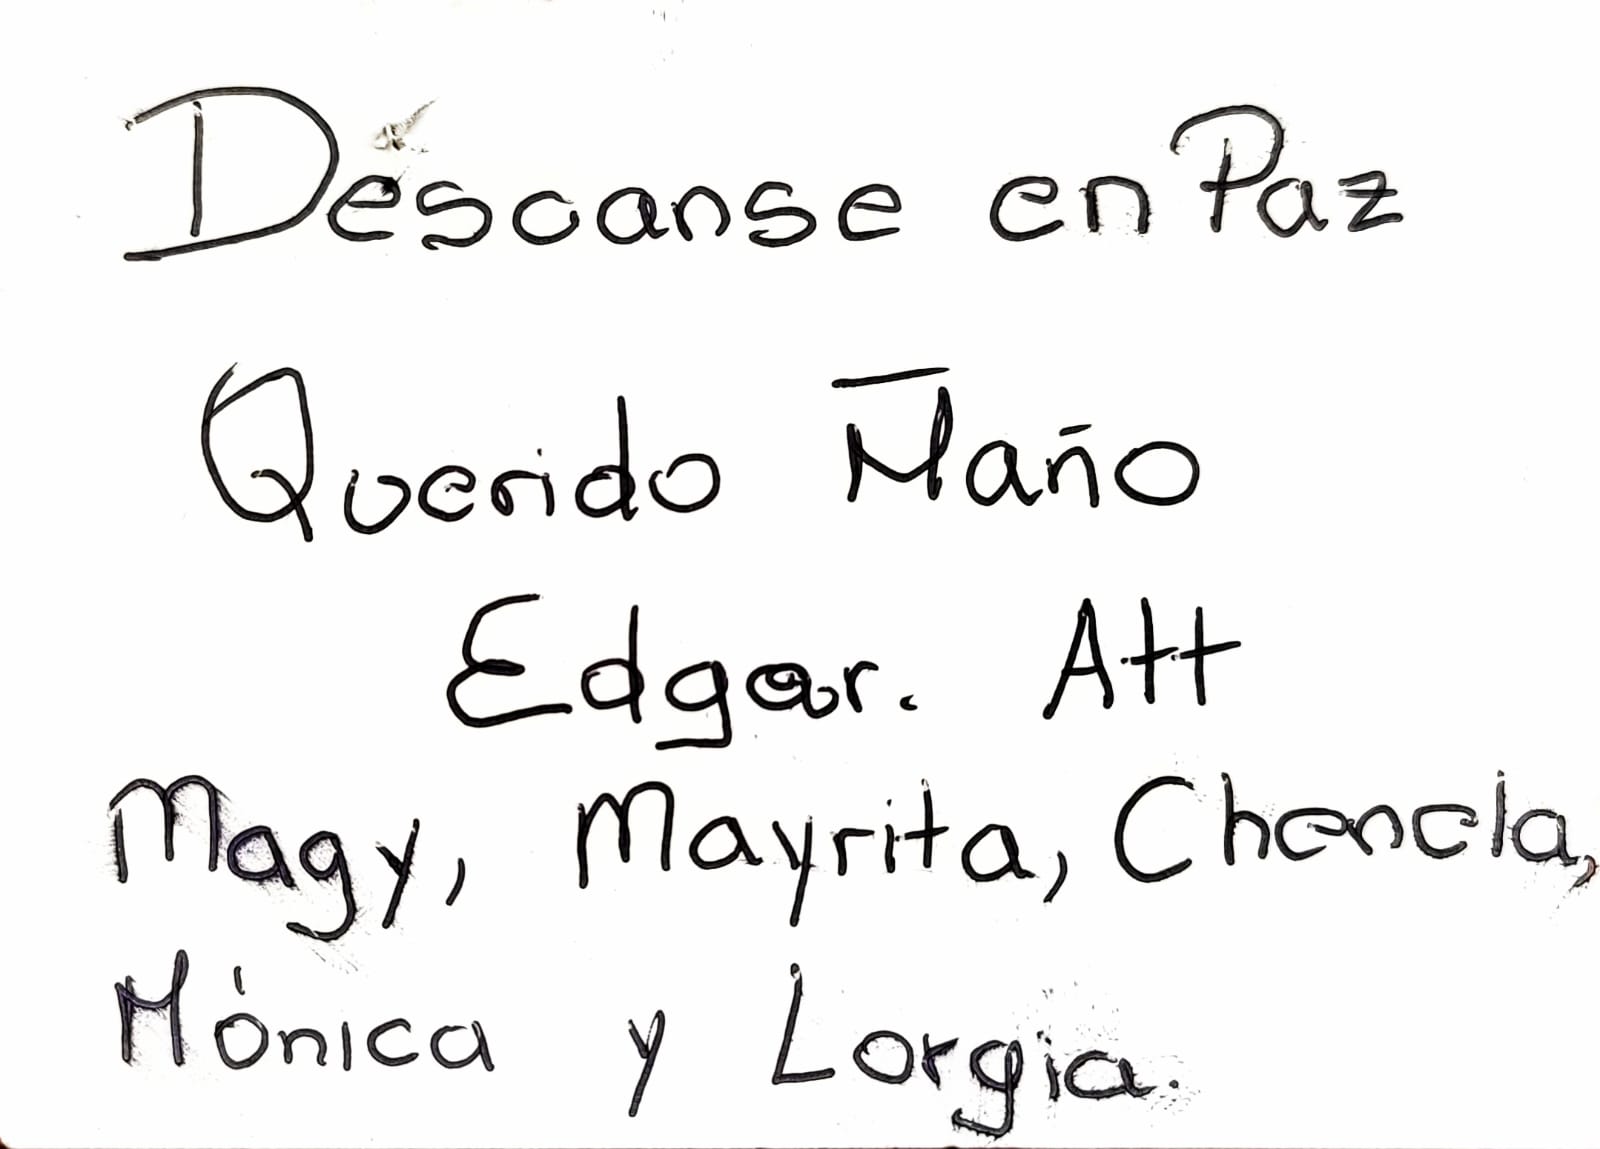 Descanse en Paz
Querido Maño
Edgar. Att
Magy, Mayrita, Chencla,
Mónica y Lorgia.